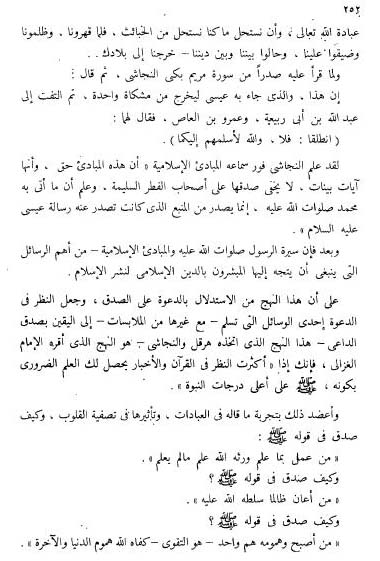 ٢٥٢
عبادة الله تعالى، وأن نستحل ما كنا نستحل من الخبائث، فلما قهرونا، وظلمونا
وضيقوا علينا، وحالوا بيننا وبين ديننا – خرجنا إلى بلادك..
ولما قرأ عليه صدراً من سورة مريم بكى النجاشى، ثم قال :
إن هذا، والذى جاء به عيسى ليخرج من مشكاة واحدة، ثم التفت إلى
عبد الله بن أبى ربيعة، وعمرو بن العاص، فقال لهما :
( انطلقا : فلا، والله لأسلمهم إليكما ).
لقد علم النجاشى فور سماعه المبادئ الإسلامية « أن هذه المبادئ حق، وأنها
آيات بينات، لا يخفى صدقها على أصحاب الفطر السليمة، وعلم أن ما أتى به
محمد صلوات الله عليه، إنما يصدر من المنبع الذى كانت تصدر عنه رسالة عيسى
عليه السلام ».
وبعد فإن سيرة الرسول صلوات الله عليه والمبادئ الإسلامية – من أهم الرسائل
التى ينبغى أن يتجه إليها المبشرون بالدين الإسلامى لنشر الإسلام.
على أن هذا النهج من الاستدلال بالدعوة على الصدق، وجعل النظر فى
الدعوة إحدى الوسائل التى تسلم – مع غيرها من الملابسات – إلى اليقين بصدق
الداعى – هذا النهج الذى اتخذه هرقل والنجاشى – هو النهج الذى أقره الإمام
الغزالى، فإنك إذا « أكثرت النظر فى القرآن والأخبار يحصل لك العلم الضرورى
بكونه، ﷺ على أعلى درجات النبوة ».
وأعضد ذلك بتجربة ما قاله فى العبادات، وتأثيرها فى تصفية القلوب، وكيف
صدق فى قوله ﷺ :
« من عمل بما علم ورثه الله علم مالم يعلم ».
وكيف صدق فى قوله ﷺ ؟
« من أعان ظالما سلطه الله عليه ».
وكيف صدق فى قوله ﷺ ؟
« من أصبح وهمومه هم واحد – هو التقوى – كفاه الله هموم الدنيا والآخرة ».